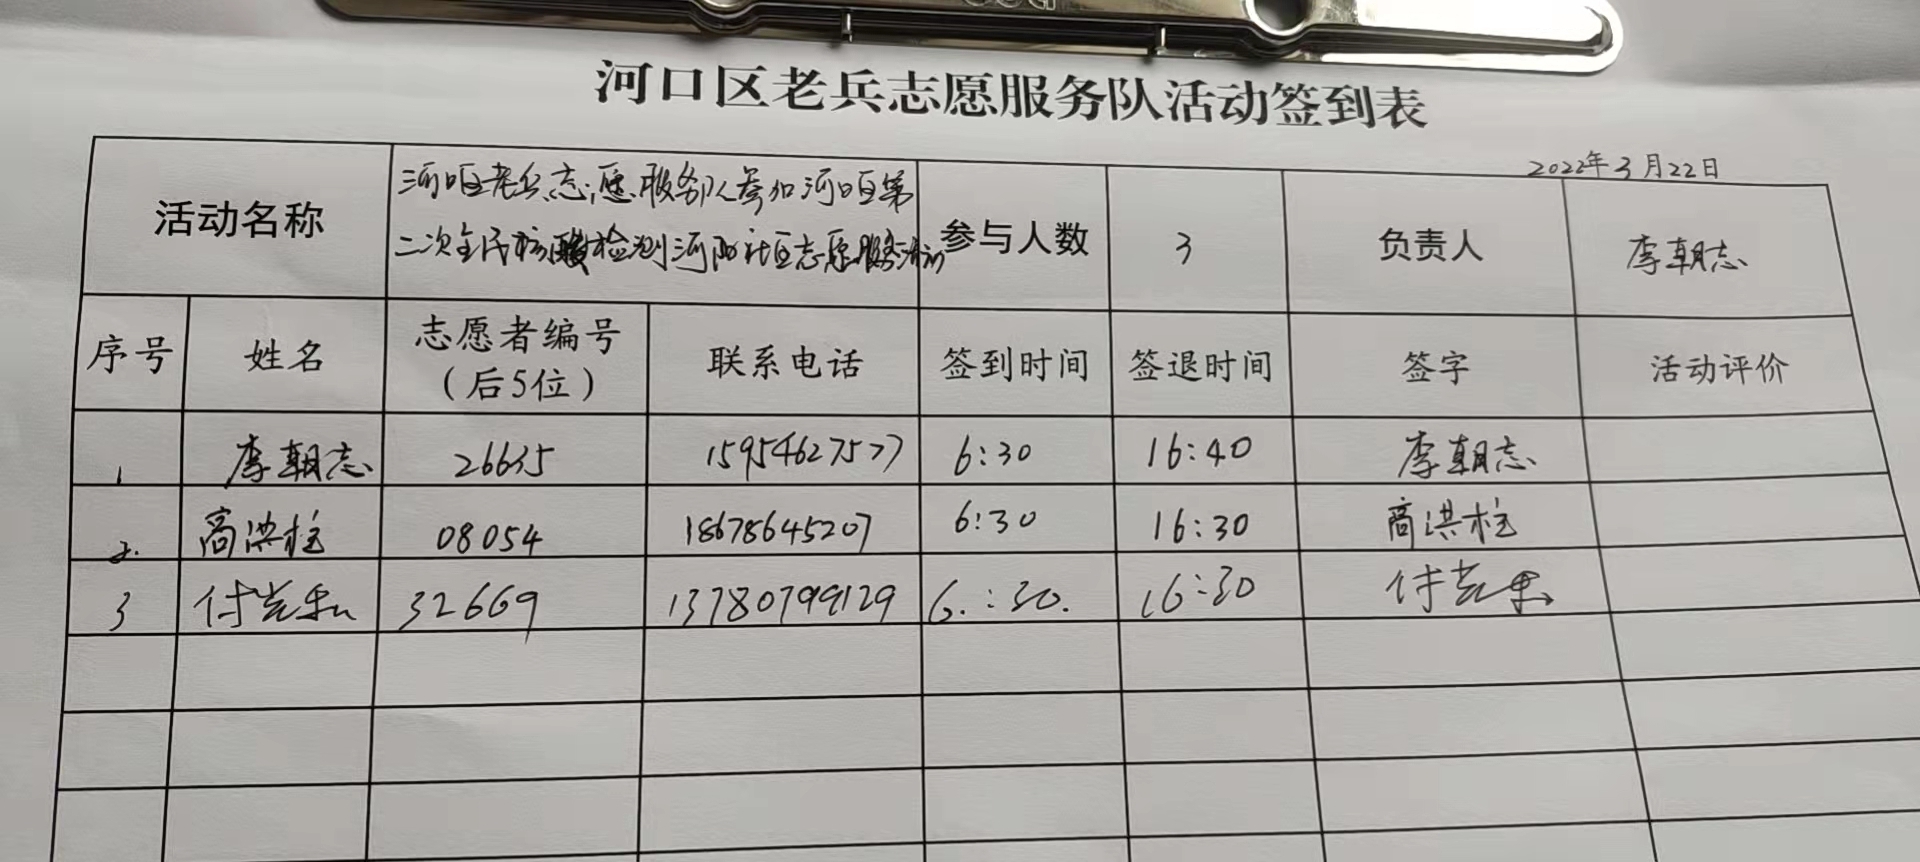 河口区老兵志愿服务队活动签到表
2022年3月22日
活动名称 河口区老兵志愿服务队参加河口区第
二次全民核酸检测河阳社区志愿服务活动 参与人数 3 负责人 李朝志
序号 姓名 志愿者编号 联系电话 签到时间 签退时间 签字 活动评价
（后5位）
1 李朝志 26635 15954627577 6:30 16:40 李朝志
2. 商洪柱 08054 18678645207 6:30 16:30 商洪柱
3 32669 13780799129 6.:30. 16:30